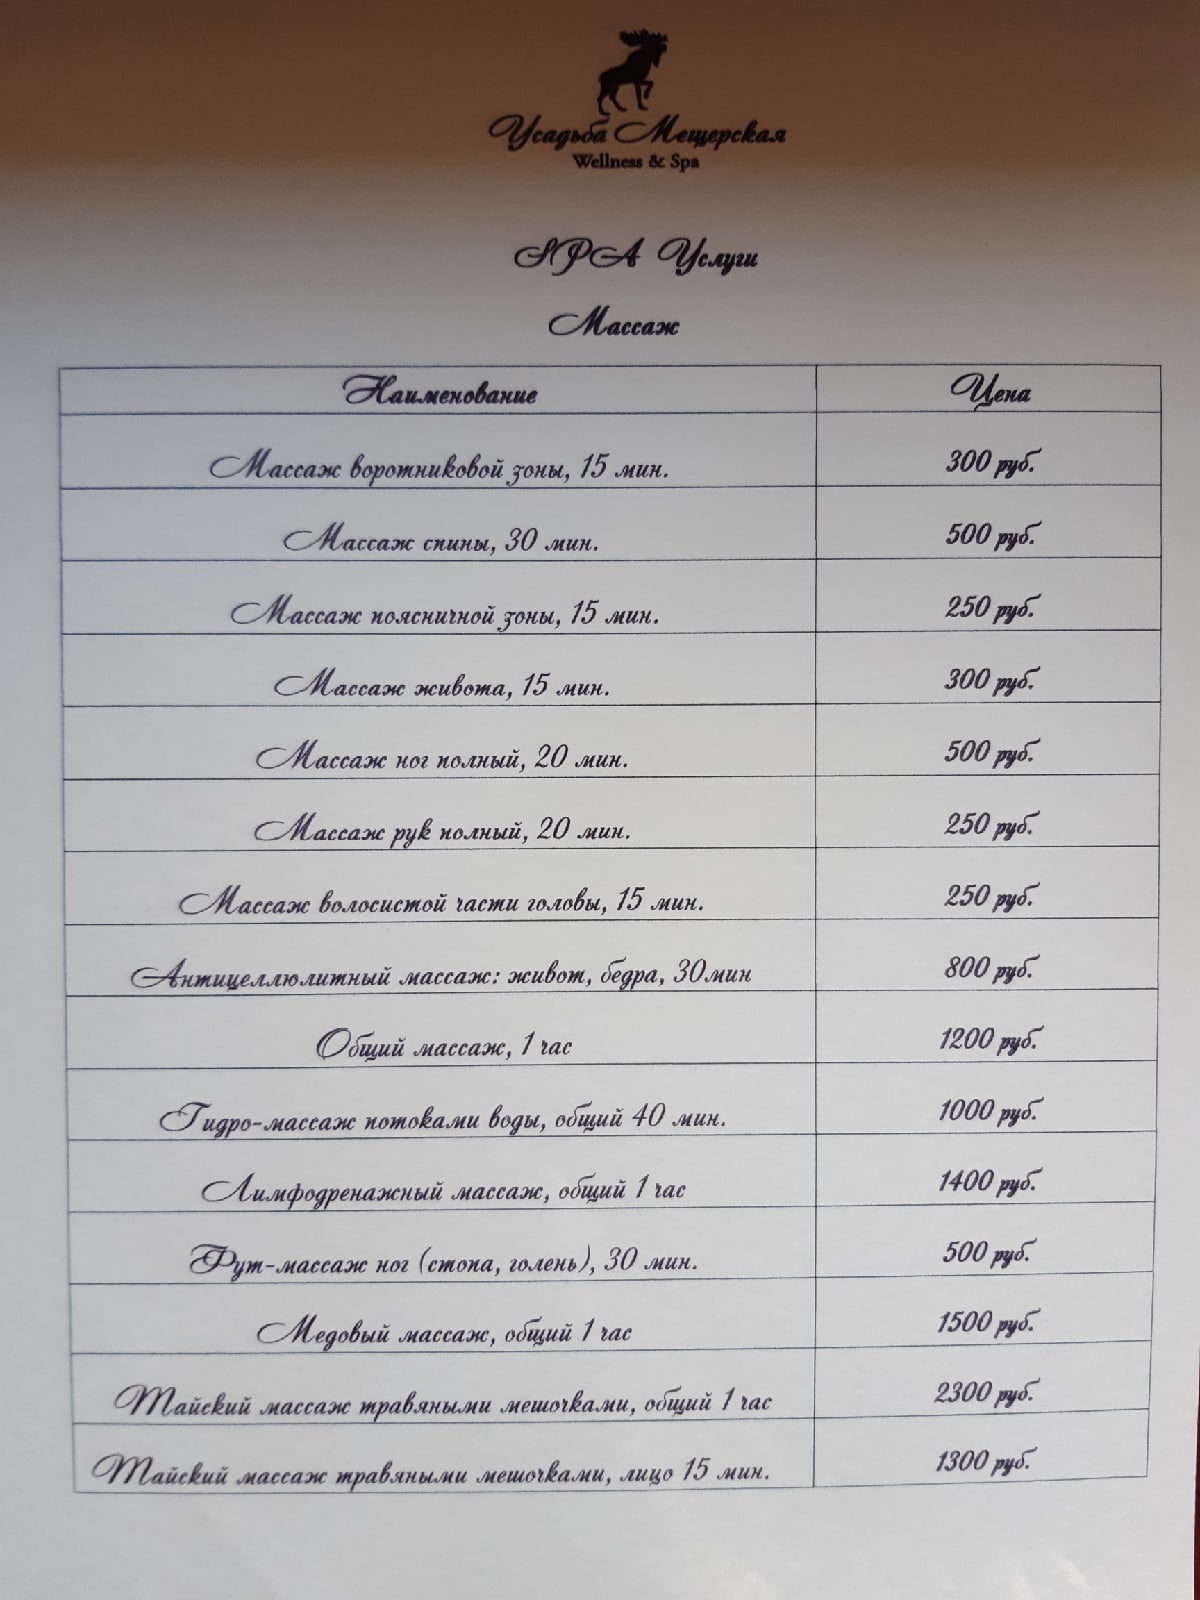 Усадьба Мещерская
Wellness & Spa
SPA Услуги
Массаж
Наименование Цена
Массаж воротниковой зоны, 15 мин. 300 руб.
Массаж спины, 30 мин. 500 руб.
Массаж поясничной зоны, 15 мин. 250 руб.
Массаж живота, 15 мин. 300 руб.
Массаж ног полный, 20 мин. 500 руб.
Массаж рук полный, 20 мин. 250 руб.
Массаж волосистой части головы, 15 мин. 250 руб.
Антицеллюлитный массаж: живот, бедра, 30мин 800 руб.
Общий массаж, 1 час 1200 руб.
Гидро-массаж потоками воды, общий 40 мин. 1000 руб.
Лимфодренажный массаж, общий 1 час 1400 руб.
Фут-массаж ног (стопа, голень), 30 мин. 500 руб.
Медовый массаж, общий 1 час 1500 руб.
Тайский массаж травяными мешочками, общий 1 час 2300 руб.
Тайский массаж травяными мешочками, лицо 15 мин. 1300 руб.